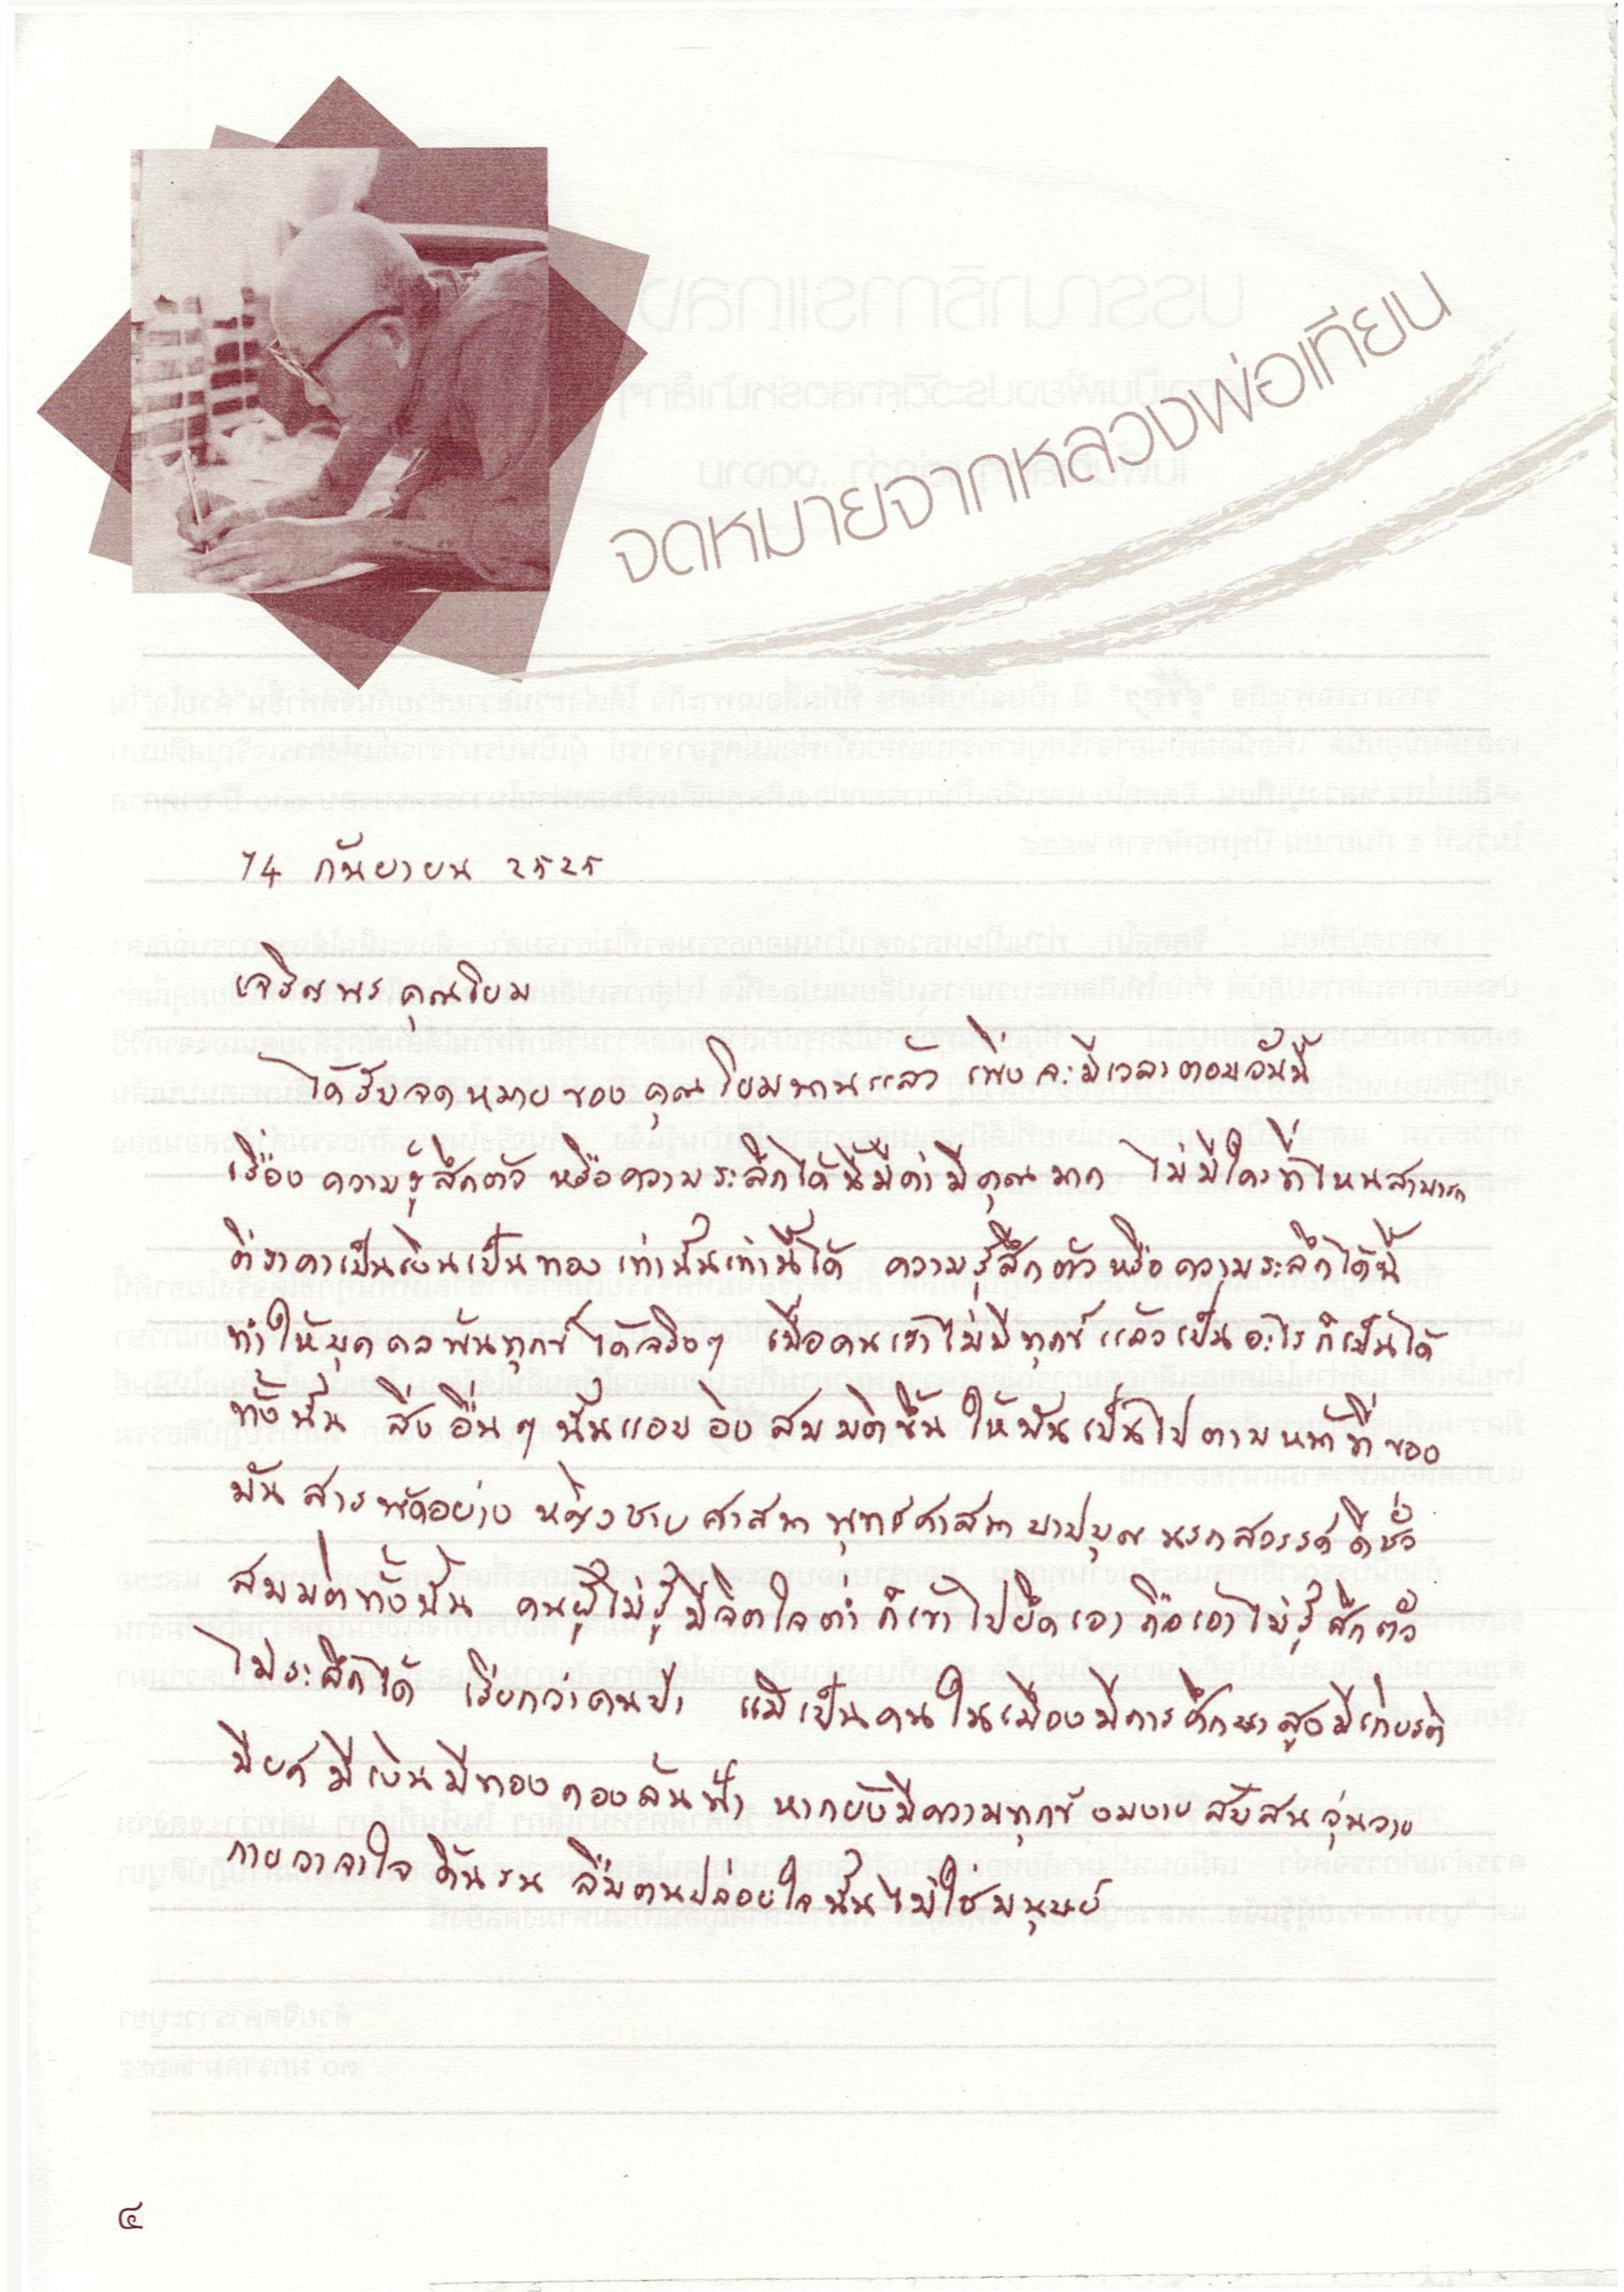 จดหมายจากหลวงพ่อเทียน
14 กันยายน 2525
เจริญพร คุณโยม
ได้รับจดหมายของคุณโยมนานแล้ว เพิ่งจะมีเวลาตอบวันนี้
เรื่องความรู้สึกตัว หรือความระลึกได้นี้มีค่ามีคุณมาก ไม่มีใครที่ไหนสามารถ
ตีราคาเป็นเงินเป็นทองเท่านั้นเท่านี้ได้ ความรู้สึกตัวหรือความระลึกได้นี้
ทำให้บุคคลพ้นทุกข์ได้จริงๆ เมื่อคนเราไม่มีทุกข์แล้วเป็นอะไรก็เป็นได้
ทั้งนั้น สิ่งอื่นๆนั้นแอบอิงสมมติขึ้น ให้มันเป็นไปตามหน้าที่ของ
มัน สารพัดอย่าง หญิงชายศาสนาพุทธศาสนา บาปบุญ นรกสวรรค์ ดีชั่ว
สมมติทั้งนั้น คนผู้ไม่รู้มีจิตใจต่ำก็เข้าไปยึดเอาถือเอาไม่รู้สึกตัว
ไม่ระลึกได้ เรียกว่าคนป่า แม้เป็นคนในเมืองมีการศึกษาสูงมีเกียรติ
มียศมีเงินมีทองกองล้นฟ้า หากยังมีความทุกข์งมงายสับสนวุ่นวาย
กายวาจาใจ ดิ้นรน ลืมตนปล่อยใจนั้นไม่ใช่มนุษย์
๔